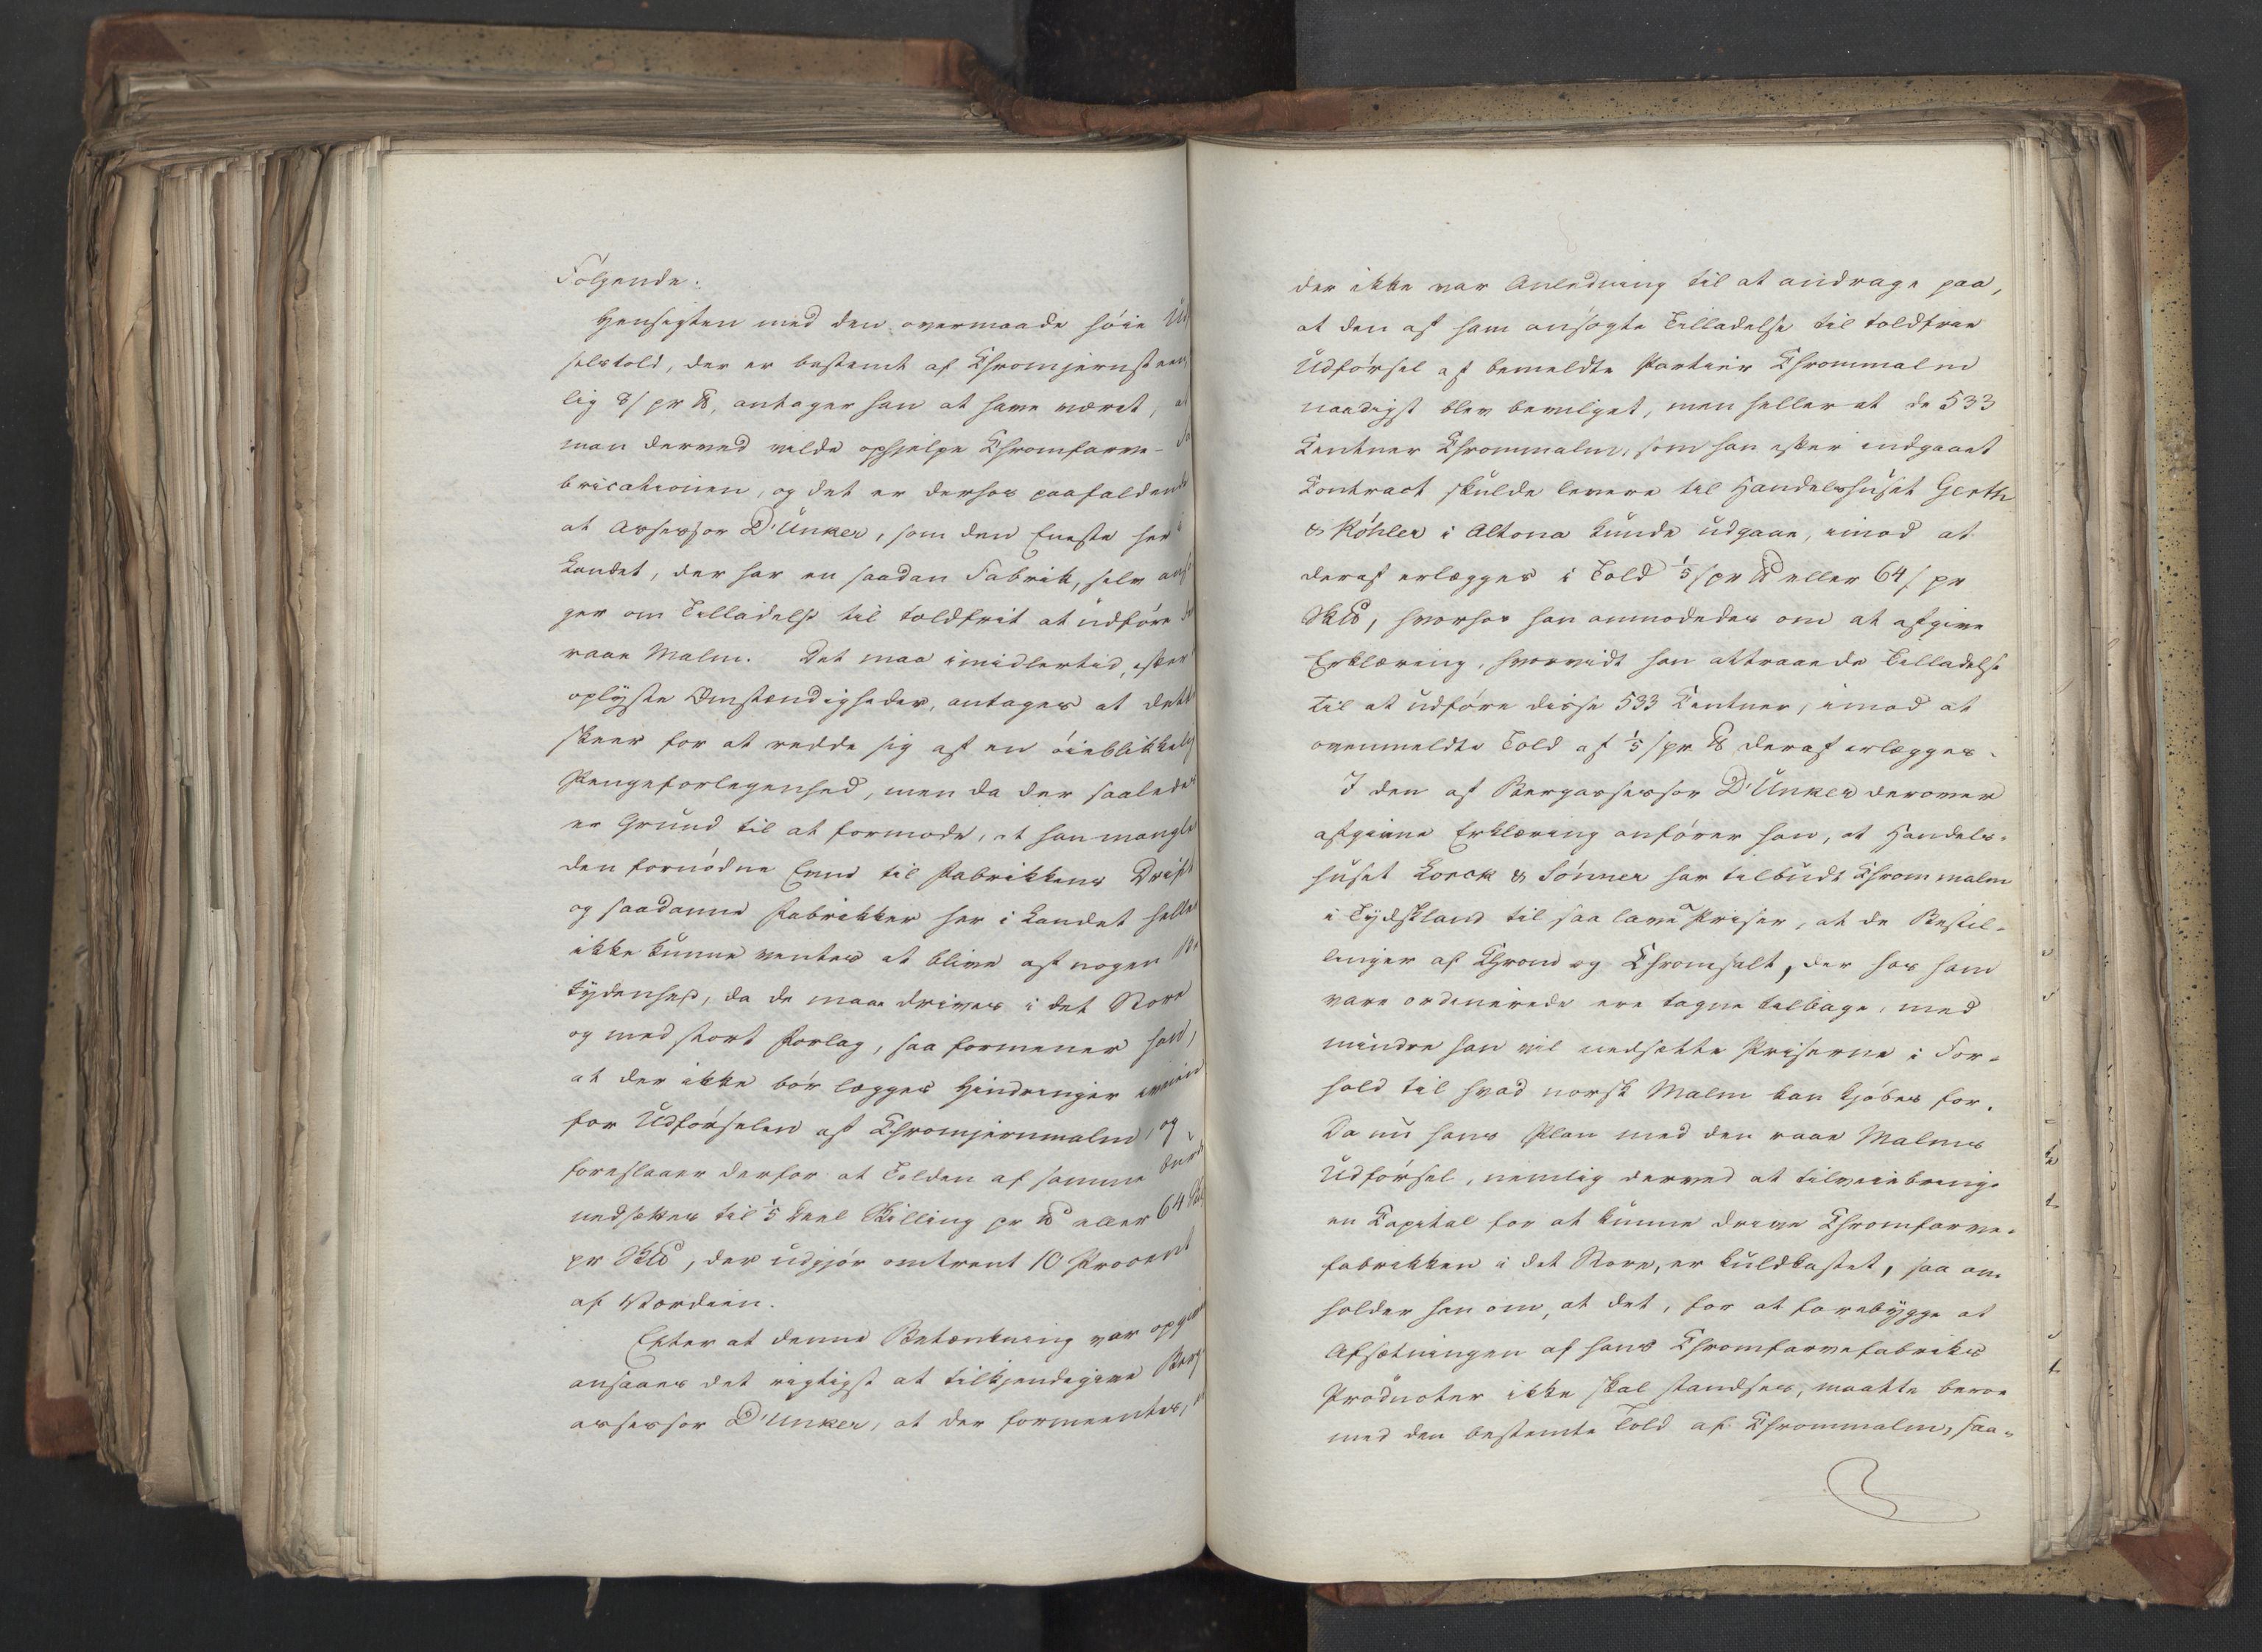 Følgende:
Hensigten med den overmaade høie Ud
selstold, der er bestemt af Chromjernsteen,
lig 8/ pr ℔, antager han at have været, at
man derved vilde ophjelpe Chromfarve-
bricationen, og det er derhos paafaldende
at Assessor D'Unker, som den Eneste her i
Landet, der har en saadan Fabrik, selv ansø
ger om Tilladelse til toldfrit at udføre
raae Malm. Det maa imidlertid, efter
oplyste Omstændigheder, antages at dette
skeer for at redde sig af en øieblikkelig
Pengeforlegenhed, men da der saaledes
er Grund til at formode, at han mangler
den fornødne Evne til Fabrikkens Drift
og saadanne Fabrikker her i Landet heller
ikke kunne ventes at blive af nogen Be
tydenhed, da de maae drives i det Store
og med stort Forlag, saa formener han,
at der ikke bør lægges Hindringer iveien
for Udførselen af Chromjernmalm, og
foreslaaer derfor at Tolden af samme burde
nedsættes til 1/5 Deel Skilling pr ℔ eller 64
pr Sk℔, der udgjør omtrent 10 Procent
af Værdien.
Efter at denne Betænkning var opgiven
ansaaes det rigtigst at tilkjendegive Berg
assessor D'Unker, at der formeentes, at
der ikke var Anledning til at andrage paa,
at den af ham ansøgte Tilladelse til toldfrie
Udførsel af bemeldte Partier Chrommalm
naadigst blev bevilget, men heller at de 533
Centner Chrommalm, som han efter indgaaet
Contract skulde levere til Handelshuset Gerth
& Köhler i Altona kunde udgaae, imod at
deraf erlægges i Told 1/5 / pr ℔ eller 64/ pr
Sk℔, hvorhos han anmodedes om at afgive
Erklæring, hvorvidt han attraaede Tilladelse
til at udføre disse 533 Centner, imod at
ovenmeldte Told af 1/5 / pr ℔ deraf erlægges.
I den af Bergassessor D'Unker derover
afgivne Erklæring anfører han, at Handels-
huset Lorck & Sønner har tilbudt Chrommalm
i Tydskland til saa lave Priser, at de Bestil-
linger af Chrom og Chromsalt, der hos ham
vare ordinerede ere tagne tilbage, med
mindre han vil nedsætte Priserne i For-
hold til hvad norsk Malm kan kjøbes for.
Da nu hans Plan med den raae Malms
Udførsel, nemlig derved at tilveiebringe
en Capital for at kunne drive Chromfarve-
fabrikken i det Store, er kuldkastet, saa an-
holder han om, at det, for at forebygge at
Afsætningen af hans Chromfarvefabriks
Producter ikke skal standses, maatte beroe
med den bestemte Told af Chrommalm, saa-